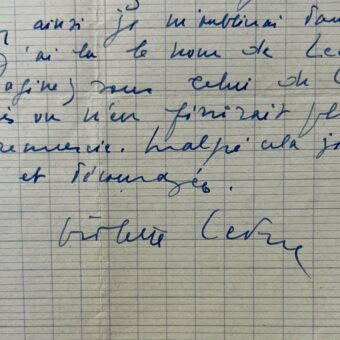 ainsi je m'oublierai dans
j'ai lu le nom de Led
sous celui de
on n'en finirait pl
remercie. Malgré cela je
et découragée.
Violette Leduc